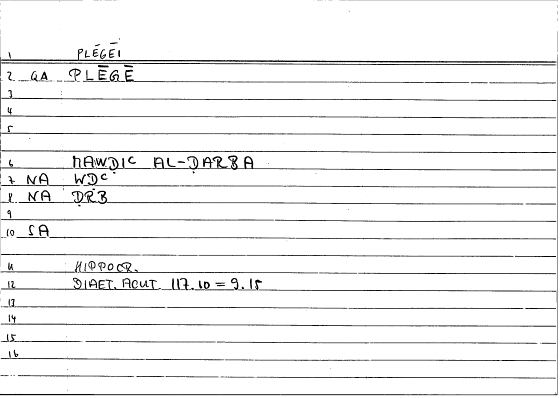 1 PLĒGĒI
2 GA PLĒGĒ
3
4
5
6 MAWḌIʿ AL-ḌARBA
7 NA WḌʿ
8 NA ḌRB
9
10 SA
11 HIPPOCR.
12 DIAET. ACUT. 117.10 = 9.15
13
14
15
16